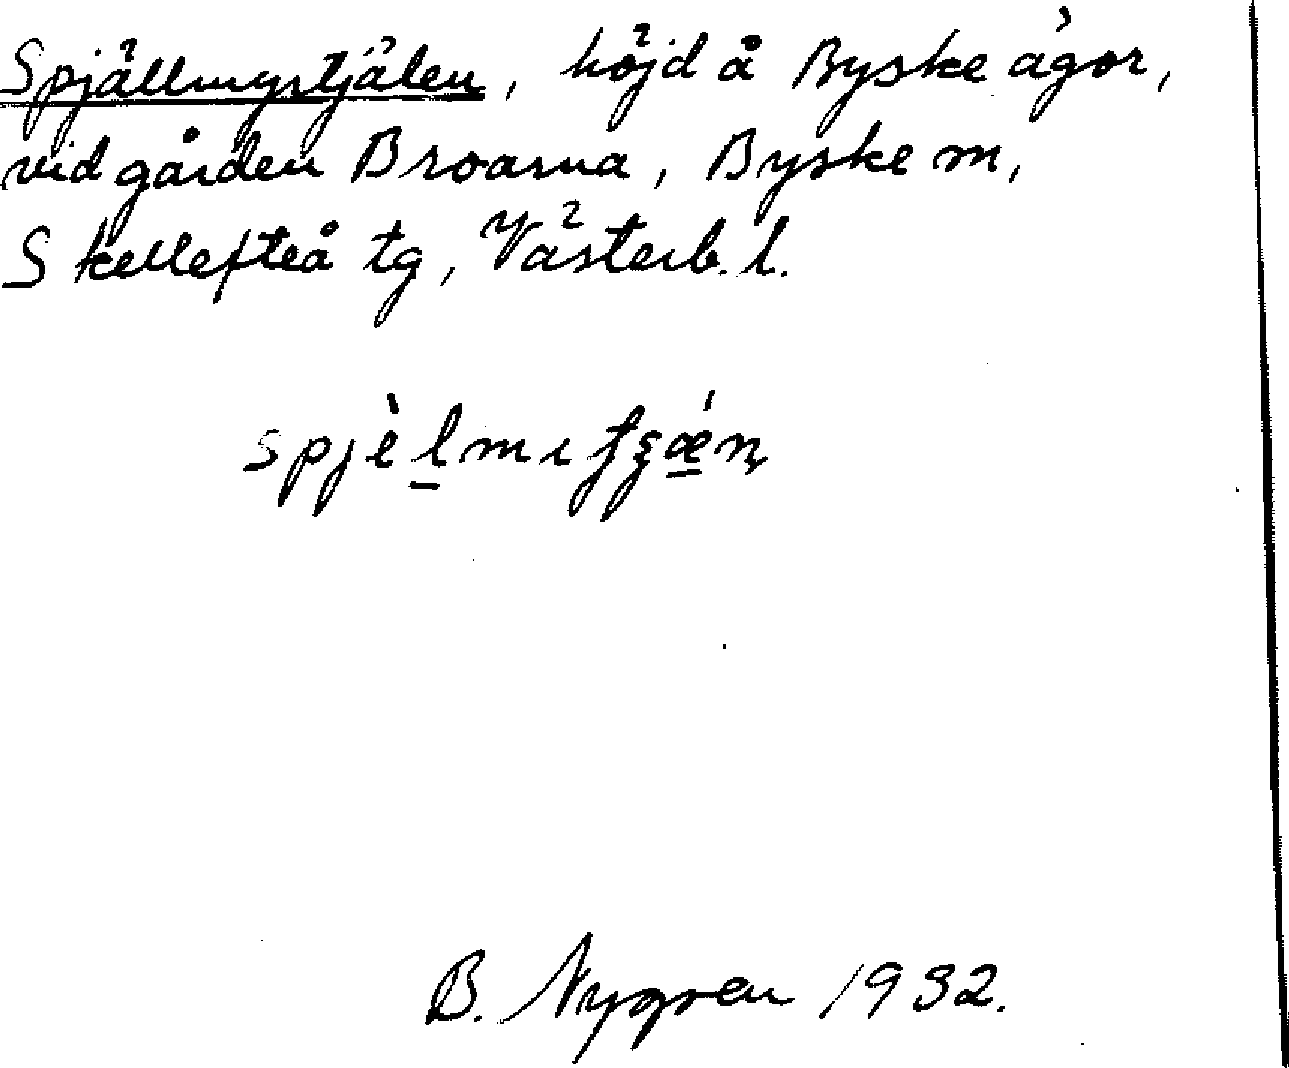 Spjällmystjälen, höjd å Byske ägor,
vid gården Broarna, Byske m,
Skellefteå tg, Västerb. l.
B. Nygren 1932.